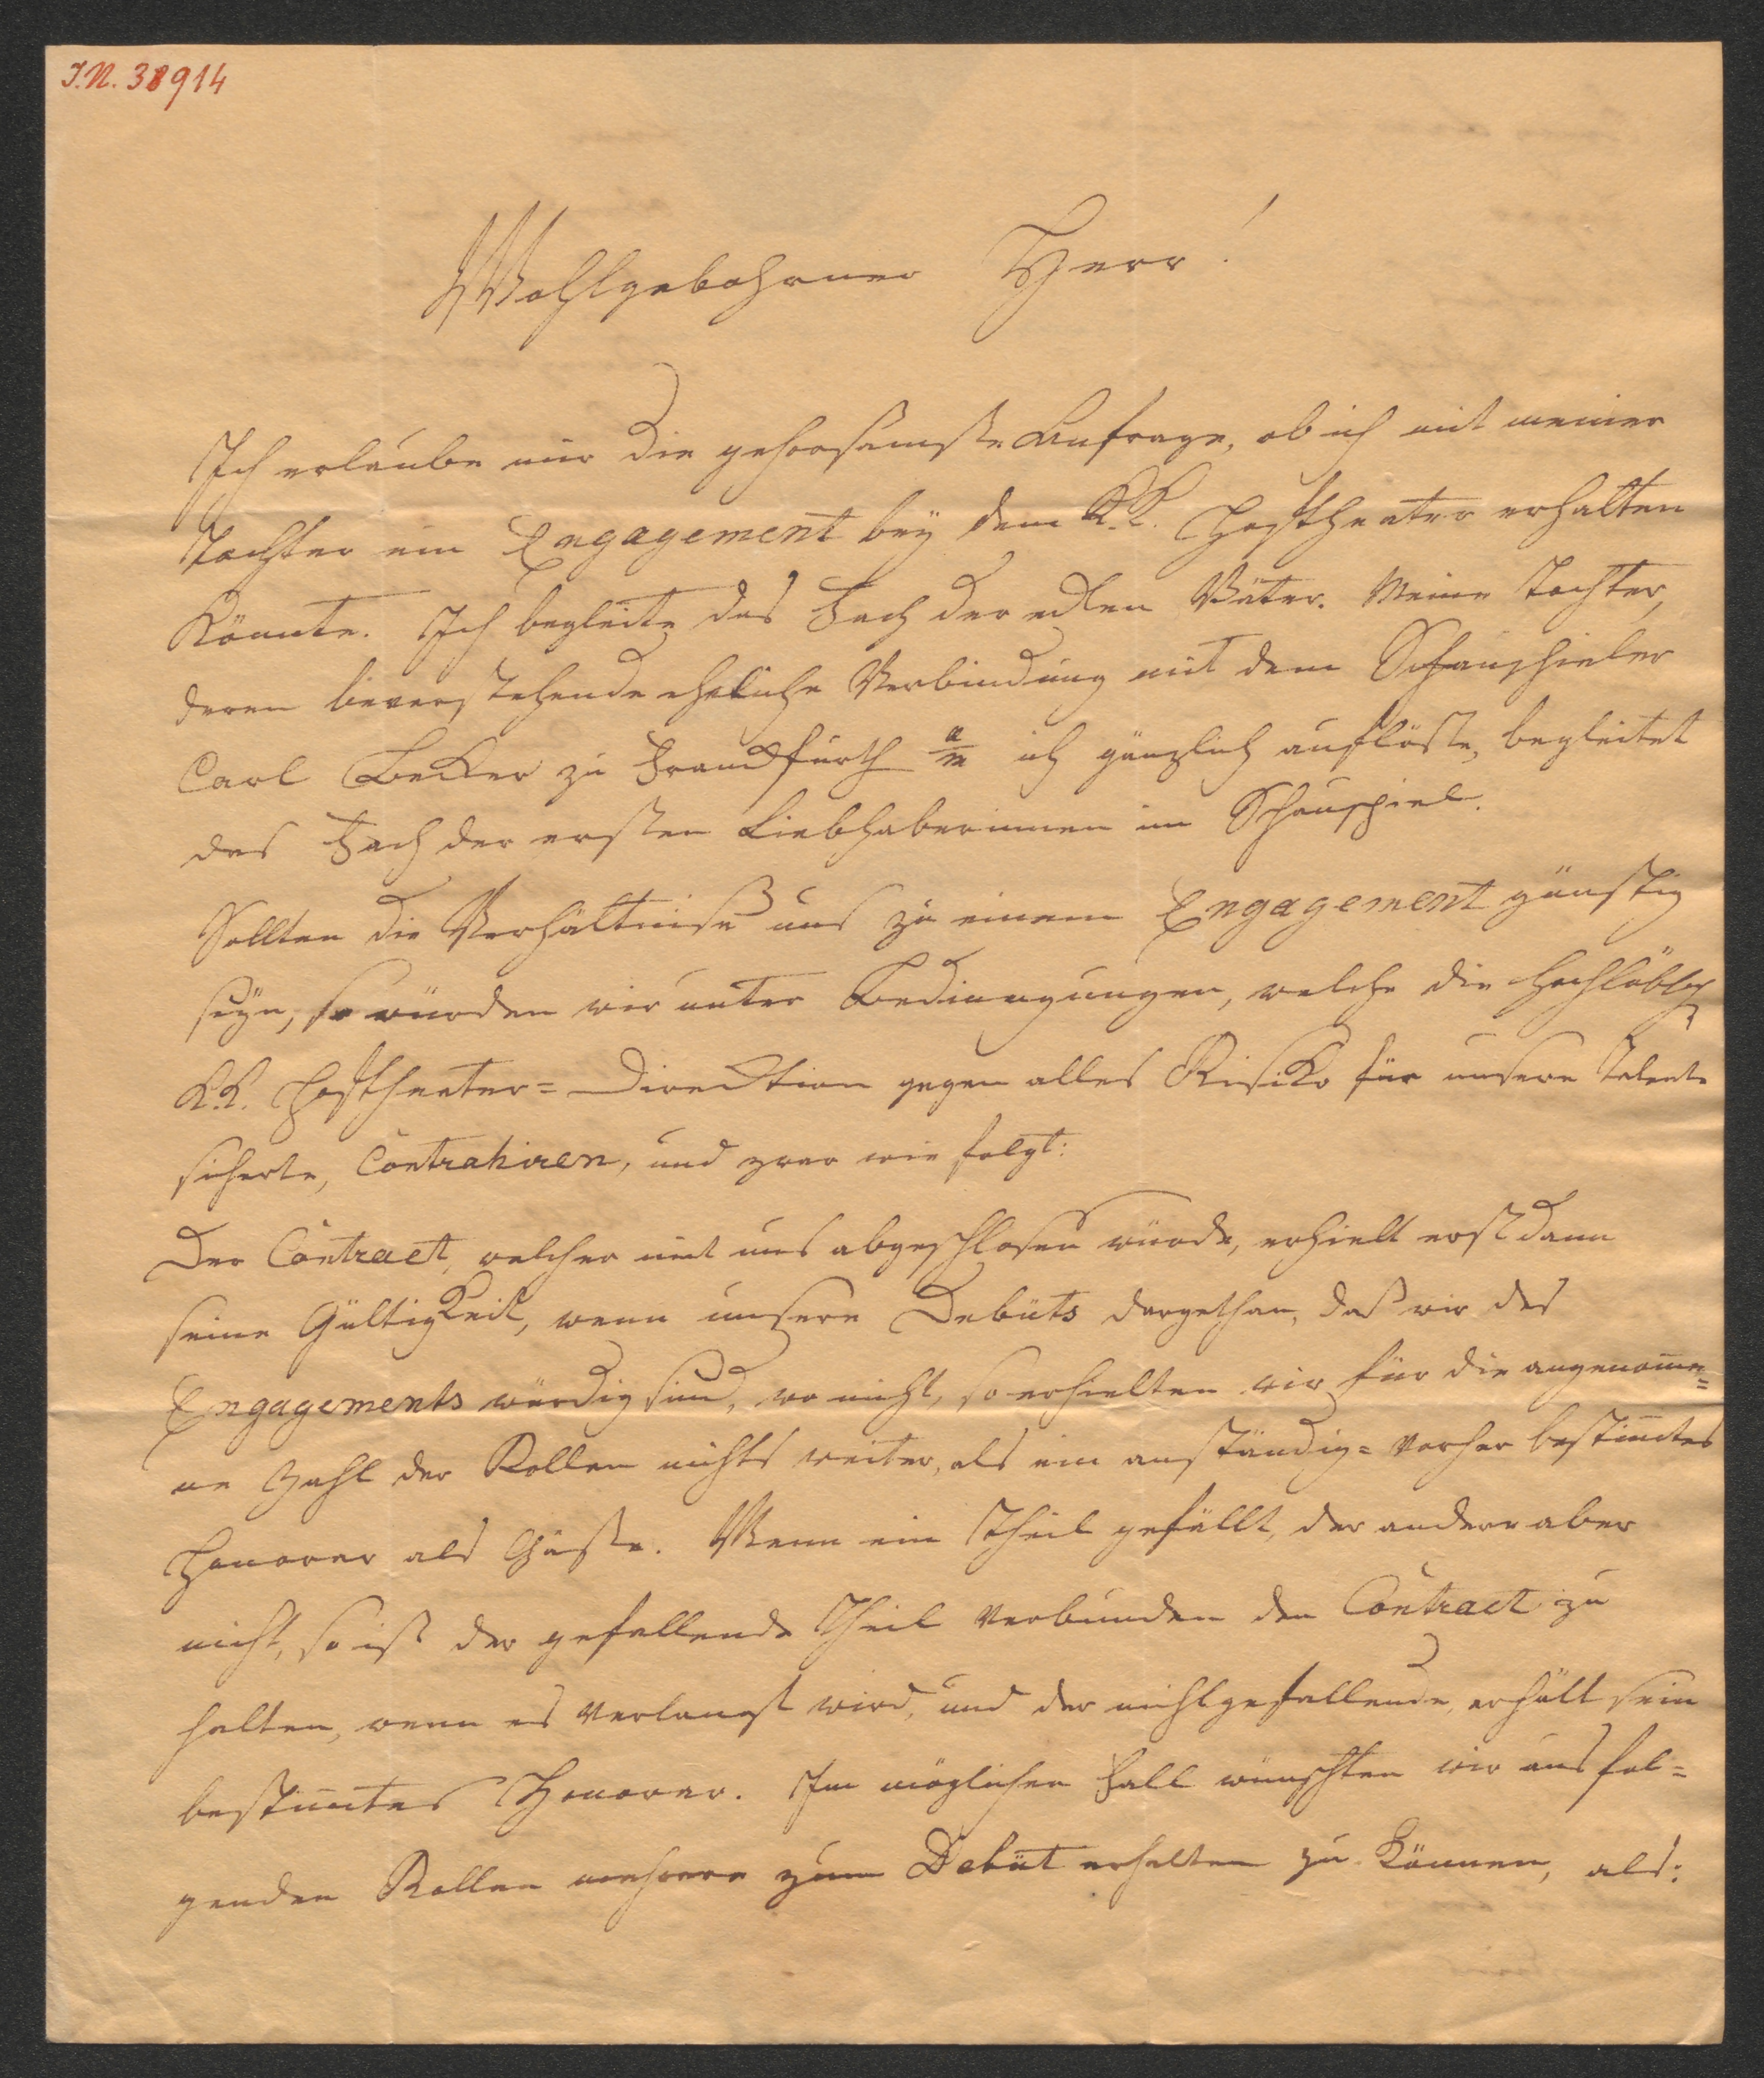 I.N. 38914
Wohlgebohrner Herr!
Ich erlaube mir die gehorsamste Anfrage, ob ich mit meiner
Tochter ein Engagement bey dem K.K. Hoftheater erhalten
könnte. Ich begleite das Fach der edlen Väter. Meine Tochter,
deren bevorstehende eheliche Verbindung mit dem Schauspieler
Carl Becker zu Frankfurth a/m ich gänzlich auflöste, begleitet
das Fach der ersten Liebhaberinnen im Schauspiel.
Sollten die Verhältniße uns zu einem Engagement günstig
seyn, so würden wir unter Bedingungen, welche die hochlöbl
K.K. Hoftheater=Direktion gegen alles Risiko für unsere Talente
sicherte, Contrahiren, und zwar wie folgt:
Der Contract, welcher mit uns abgeschloßen würde, erhielt erst dann
seine Gültigkeit, wenn unsere Debüts dargethan, daß wir des
Engagements würdig sind, wo nicht, so erhielten wir für die angenom̅e=
ne Zahl der Rollen nichts weiter, als ein anständig= vorher bestim̅tes
Honorar als Gäste. Wenn ein Theil gefällt, der andere aber
nicht, so ist der gefallende Theil verbunden den Contract zu
halten, wenn es verlangt wird, und der nichtgefallende, erhält sein
bestim̅tes Honorar. Im möglichen Fall wünschten wir aus fol=
genden Rollen mehrere zum Debüt erhalten zu können, als: